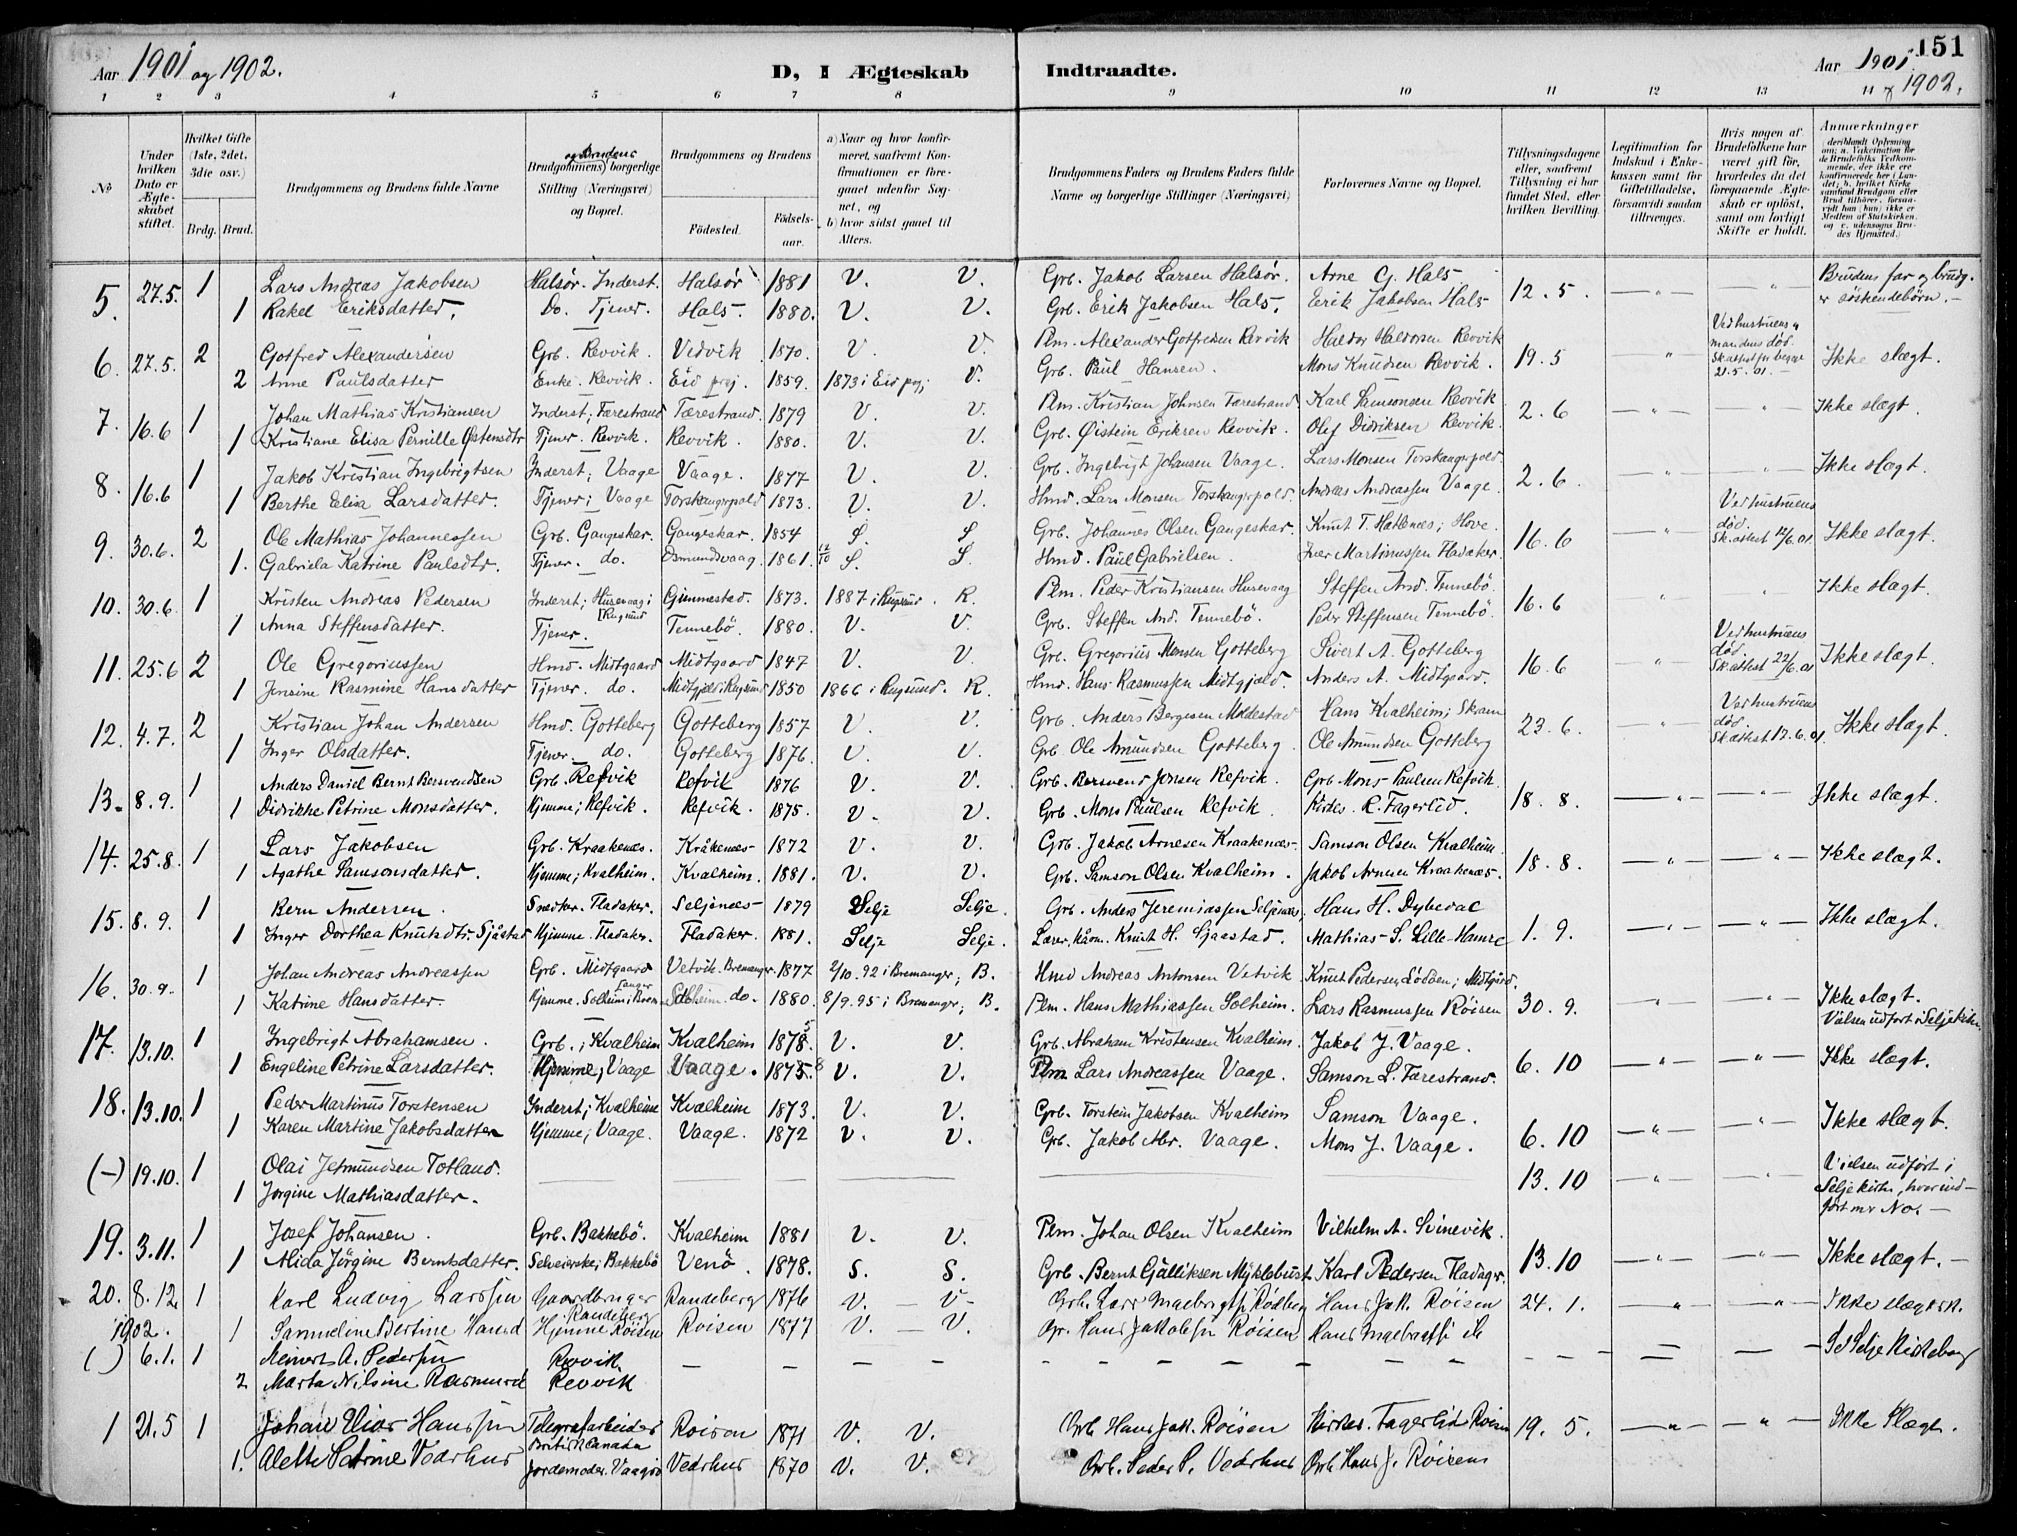 Aar 1901 og 1902.
D, I Ægteskab Indtraadte.
Aar 1901 & 1902.
151
1 2 3 4 5 6 7 8 9 10 11 12 13 14
No
Under hvilken Dato er Ægteskabet stiftet.
Hvilket Gifte (1ste, 2det, 3die osv.)
Brdg. Brud.
Brudgommens og Brudens fulde Navne
Brudgommens og Brudens borgerlige Stilling (Næringsvei) og Bopæl.
Brudgommens og Brudens
Fødested.
Fødselsaar.
a) Naar og hvor konfirmeret, saafremt Konfirmationen er foregaaet udenfor Sognet, og
b) hvor sidst gaaet til Alters.
Brudgommens Faders og Brudens Faders fulde Navne og borgerlige Stillinger (Næringsvei)
Forlovernes Navne og Bopæl.
Tillysningsdagene eller, saafremt Tillysning ei har fundet Sted, efter hvilken Bevilling.
Legitimation for Indskud i Enkekassen samt for Giftetilladelse, forsaavidt saadan tiltrænges.
Hvis nogen af Brudefolkene har været gift før, hvorledes da det foregaaende Ægteskab er opløst, samt om lovligt Skifte er holdt.
Anmærkninger (deriblandt Oplysning om: a. Vakcination for de Brudefolks Vedkommende, der ikke ere konfirmerede her i Landet; b. hvilket Kirkesamfund Brudgom eller Brud tilhører, forsaavidt han (hun) ikke er Medlem af Statskirken, og c. udensogns Brudes Hjemsted.)
5. 27.5. 1 Lars Andreas Jakobsen Halsør. Inderst. Halsør 1881 V. V. Grb. Jakob Larsen Halsør. Arne G. Hals 12.5. — " — — " — Brudens far og brudg.
1 Rakel Eriksdatter. Do. Tjener. Hals. 1880. V. V. Grb. Erik Jakobsen Hals. Erik Jakobsen Hals er söskendebørn. —
6. 27.5. 2 Gotfred Alexandersen Grb. Revvik. Vedvik 1870. V. V. Plm. Alexander Gotfredsen Revvik Haldor Haldorsen Revvik 19.5 " Ved hustruens og mandens död. Skattest for begge 21.5.01. — Ikke slægt.
2 Anne Paulsdatter Enke. Revvik. Eid prgj. 1859. 1873 i Eid prgj. V. Grb. Paul Hansen. Mons Knudsen Revvik.
7. 16.6 1 Johan Mathias Kristiansen Inderst; Færestrand Færestrand. 1879 V. V. Plm. Kristian Johnsen Færestrand. Karl Samsonsen Revvik 2.6 — " — " — Ikke slægt.
1 Kristiane Elisa Pernille Østensdtr Tjener. Revvik. Revvik. 1880. V. V. Grb. Øistein Eriksen Revvik. Olef Didriksen Revvik.
8. 16.6 1 Jakob Kristian Ingebrigtsen Inderst; Vaage Vaage. 1877 V. V. Grb. Ingebrigt Johansen Vaage. Lars Monsen Torskangerpold. 2.6. " " Ikke slægt.
1 Berthe Elisa Larsdatter. Tjener; Vaage Torskangerpold 1873. V. V. Hmd. Lars Monsen Torskangerpold. Andreas Andreassen Vaage.
9. 30.6. 2 Ole Mathias Johannessen Grb. Gangeskar. Gangeskar. 1854 S. S. Grb. Johannes Olsen Gangeskar. Knut T. Hatlenæs; Hove. 16.6 — " Ved hustruens död. Skattest 12/6.01. Ikke slægt.
1. Gabriela Katrine Paulsdtr. Tjener. do. Osmundsvaag. 1861. 12/10 S. S. Hmd. Paul Gabrielsen. Iver Martinussen Fladaker.
10. 30.6. 1 Kristen Andreas Pedersen Inderst; Husevaag i Rugsund Gjunnestad. 1873. 1887 i Rugsund. R. Plm. Peder Kristiansen Husevaag Steffen And. Tennebö. 16.6 " " Ikke slægt.
1 Anna Steffensdatter. Tjener. Tennebö. 1880. V. V. Grb. Steffen And. Tennebö. Peder Steffensen Tennebö.
11. 25.6 2 Ole Gregoriussen Hmd. Midtgaard Midtgaard 1847 V. V. Grb. Gregorius Monsen Gotteberg Sivert A. Gotteberg 16.6 — " Ved hustruens död. Skattest 22/6.01 Ikke slægt.
1 Jensine Rasmine Hansdatter Tjener. do. Midtgjæld i Rugsund 1850 1866 i Rugsund. R. Hmd. Hans Rasmussen Midtgjæld. Anders A. Midtgaard.
12. 4.7. 2 Kristian Johan Andersen Hmd. Gotteberg Gotteberg 1857 V. V. Grb. Anders Bergesen Moldestad Hans Kvalheim; Skram 23.6. — " Ved hustruens död. Skattest 17.6.01. Ikke slægt.
1 Inger Olsdatter. Tjener. do. Gotteberg 1876. V. V. Grb Ole Amundsen Gotteberg. Ole Amundsen Gotteberg
13. 8.9. 1 Anders Daniel Bernt Bersvendsen Grb. Refvik Refvik 1876 V. V. Grb. Bersvend Jensen Refvik. Grb. Mons Paulsen Refvik. 18.8. — " — — " — Ikke slægt.
1 Didrikke Petrine Monsdatter. Hjemme; Refvik. Refvik. 1875. V. V. Grb. Mons Paulsen Refvik Kirkes. R. Fagerlid.
14. 25.8. 1 Lars Jakobsen Grb. Kraakenæs. Kråkenæs 1872 V. V. Grb. Jakob Arnesen Kraakenæs. Samson Olsen Kvalheim. 18.8. — " — — " — Ikke slægt.
1 Agathe Samsonsdatter. Hjemme; Kvalheim. Kvalheim. 1881. V. V. Grb. Samson Olsen Kvalheim. Jakob Arnesen Kraakenæs.
15. 8.9. 1 Bern Andersen. Snedker. Fladaker. Seljenæs 1879 Selje Selje. Grb. Anders Jeremiassen Seljenæs. Hans H. Dybedal 1.9. — " — — " — Ikke slægt.
1 Inger Dorthea Knutsdtr. Sjåstad Hjemme. Fladaker. Fladaker. 1881. Selje Selje. Lærer. Kåsm. Knut H. Sjaastad. Mathias S. Lille-Hamre
16. 30.9. 1 Johan Andreas Andreassen Grb. Midtgaard Vetvik. Bremanger. 1877 2/10.92 i Bremanger; B. Hmd Andreas Antonsen Vetvik Knut Pedersen Lödöen; Midtgård. 30.9. " " Ikke slægt.
1 Katrine Hansdatter. Hjemme. Solheim i Bremanger Solheim do. 1880. 8/9.95 i Bremanger; B. Plm. Hans Mathiassen Solheim. Lars Rasmussen Røisen Vielsen udført i Seljekirke.
17. 13.10. 1 Ingebrigt Abrahamsen. Grb.; Kvalheim Kvalheim 1875. V. V. Grb. Abraham Kristensen Kvalheim. Jakob J. Vaage. 6.10 — " — — " — Ikke slægt.
1 Engeline Petrine Larsdatter. Hjemme; Vaage Vaage. 1878 V. V. Plm Lars Andreassen Vaage. Samson L. Færestrand.
18. 13.10. 1 Peder Martinus Torstensen Inderst; Kvalheim Kvalheim 1873. V. V. Grb. Torstein Jakobsen Kvalheim Samson Vaage. 6.10 — " — — " — Ikke slægt.
1 Karen Martine Jakobsdatter Hjemme; Vaage. Vaage. 1872 V. V. Grb. Jakob Abr. Vaage. Mons J. Vaage.
(—) 19.10. 1 Olai Jetmundsen Totland. 13.10 — " — — " — Vielsen udført i
1 Jørgine Mathiasdatter. Seljekirke, hvor indført m/ No. —
19. 3.11. 1 Josef Johansen. Grb. Bakkebö. Kvalheim 1881 V. V. Plm. Johan Olsen Kvalheim Vilhelm A. Svinevik. 13.10 — " — — " — Ikke slægt. —
1 Alida Jörgine Berntsdatter. Selveierske; Bakkebö Venö. 1878. S. S. Grb. Bernt Gjölliksen Myklebust Karl Pedersen Fladager
20. 8.12. 1 Karl Ludvig Larssen Gaardbruger Randeberg Randeberg 1876 V. — V. Grb. Lars Ingebrigts. Rødberg Hans Jak. Röisen 24.1. — " — — " — Ikke slægtsk.
1902. 1 Samueline Bertine Hansd Hjemme Röisen Roisen 1877 V. — V. Gr. Hans Jakobsen Röisen Hans
( ) 6.1. 1 Meinert A. Pedersen Revvik — — — — — — — — — Se Selje Kirkebog
2 Marta Nilsine Rasmusd Revvik
1 21.5 1 Johan Elias Hanssen Telegrafarbeider British Canada Roison 1871 V. V. Grb Hans Jak. Roisen Kirkes. Fagerlid Roisen 19.5. — " — — " — Ikke Slægt.
1. Alette Petrine Vedrhus Jordemoder. Vaagsø Vedrhus 1870 V. V. Grb. Peder P. Vedrhus Grb Hans J. Röisens